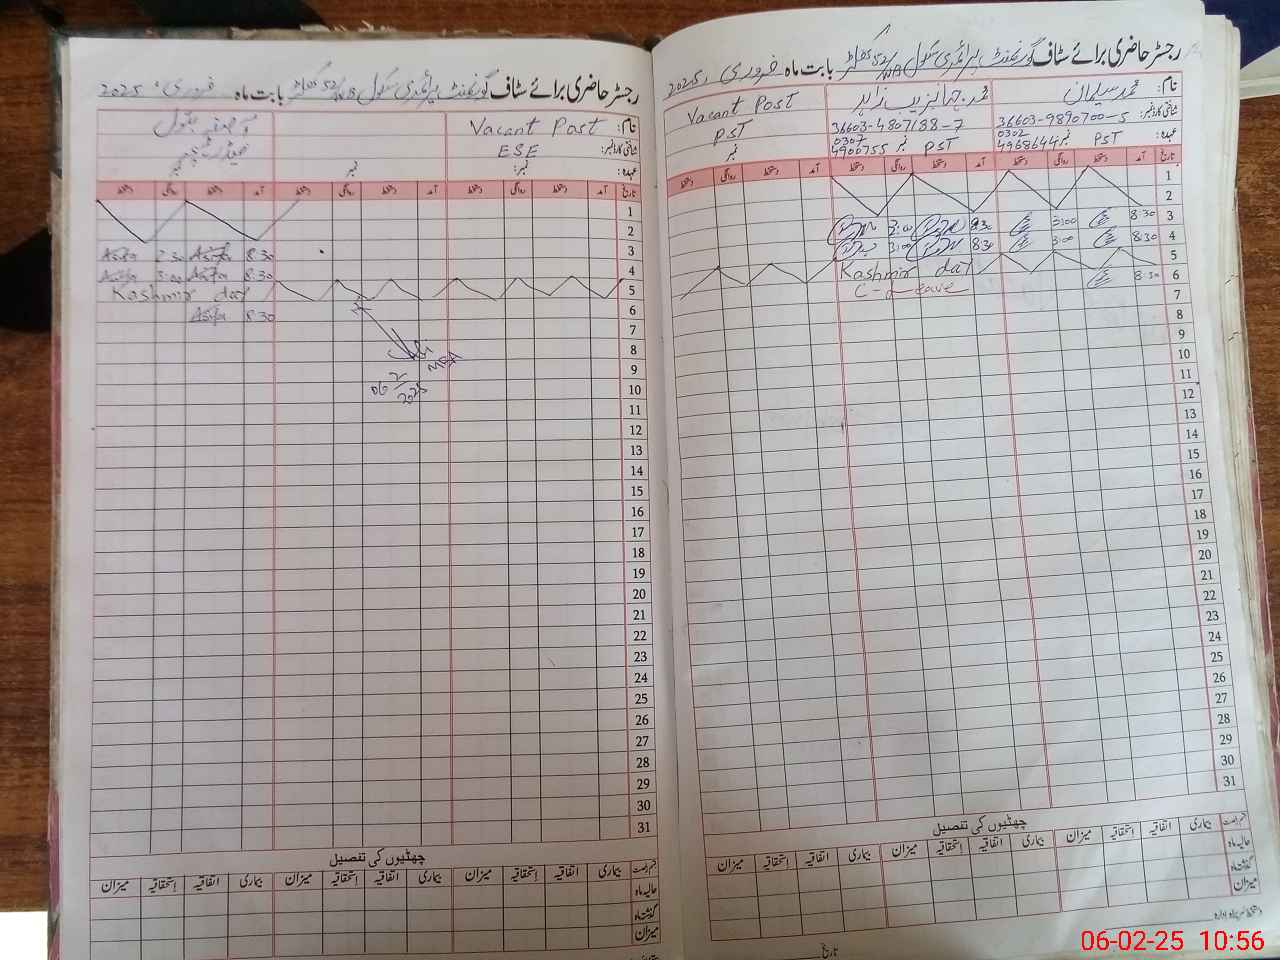 رجسٹر حاضری برائے سٹاف گورنمنٹ پرائمری سکول 52/WB بابت ماہ فروری 2025ء
نام: محمد سلیمان
شناختی کارڈ نمبر: 36603-9890700-5
عہدہ: PST نمبر 0302 4968644
محمد جہانزیب زاہد
36603-4807188-7
0307 4900755 نمبر PST
Vacant Post
PST
نمبر
تاریخ آمد دستخط روانگی دستخط آمد دستخط روانگی دستخط آمد دستخط روانگی دستخط
1
2
3 8:30 3:00 8:30 3:00
4 8:30 3:00 8:30 3:00
5 Kashmir day
6 8:30 C-Leave
7
8
9
10
11
12
13
14
15
16
17
18
19
20
21
22
23
24
25
26
27
28
29
30
31
چھٹیوں کی تفصیل
قسم رخصت بیماری اتفاقیہ استحقاقیہ میزان بیماری اتفاقیہ استحقاقیہ میزان بیماری اتفاقیہ استحقاقیہ میزان
حالیہ ماہ
گذشتہ ماہ
میزان
دستخط سربراہ ادارہ
تاریخ
رجسٹر حاضری برائے سٹاف گورنمنٹ پرائمری سکول 52/WB بابت ماہ فروری 2025ء
نام: Vacant Post
شناختی کارڈ نمبر: ESE
عہدہ: نمبر:
نمبر
آصفہ بتول
نمبر
تاریخ آمد دستخط روانگی دستخط آمد دستخط روانگی دستخط آمد دستخط روانگی دستخط
1
2
3 8:30 Asifa 2:30 Asifa
4 8:30 Asifa 3:00 Asifa
5 Kashmir day
6 8:30 Asifa
7
8
MEA
9
06/2/2025
10
11
12
13
14
15
16
17
18
19
20
21
22
23
24
25
26
27
28
29
30
31
چھٹیوں کی تفصیل
قسم رخصت بیماری اتفاقیہ استحقاقیہ میزان بیماری اتفاقیہ استحقاقیہ میزان بیماری اتفاقیہ استحقاقیہ میزان
حالیہ ماہ
گذشتہ ماہ
میزان
06-02-25 10:56